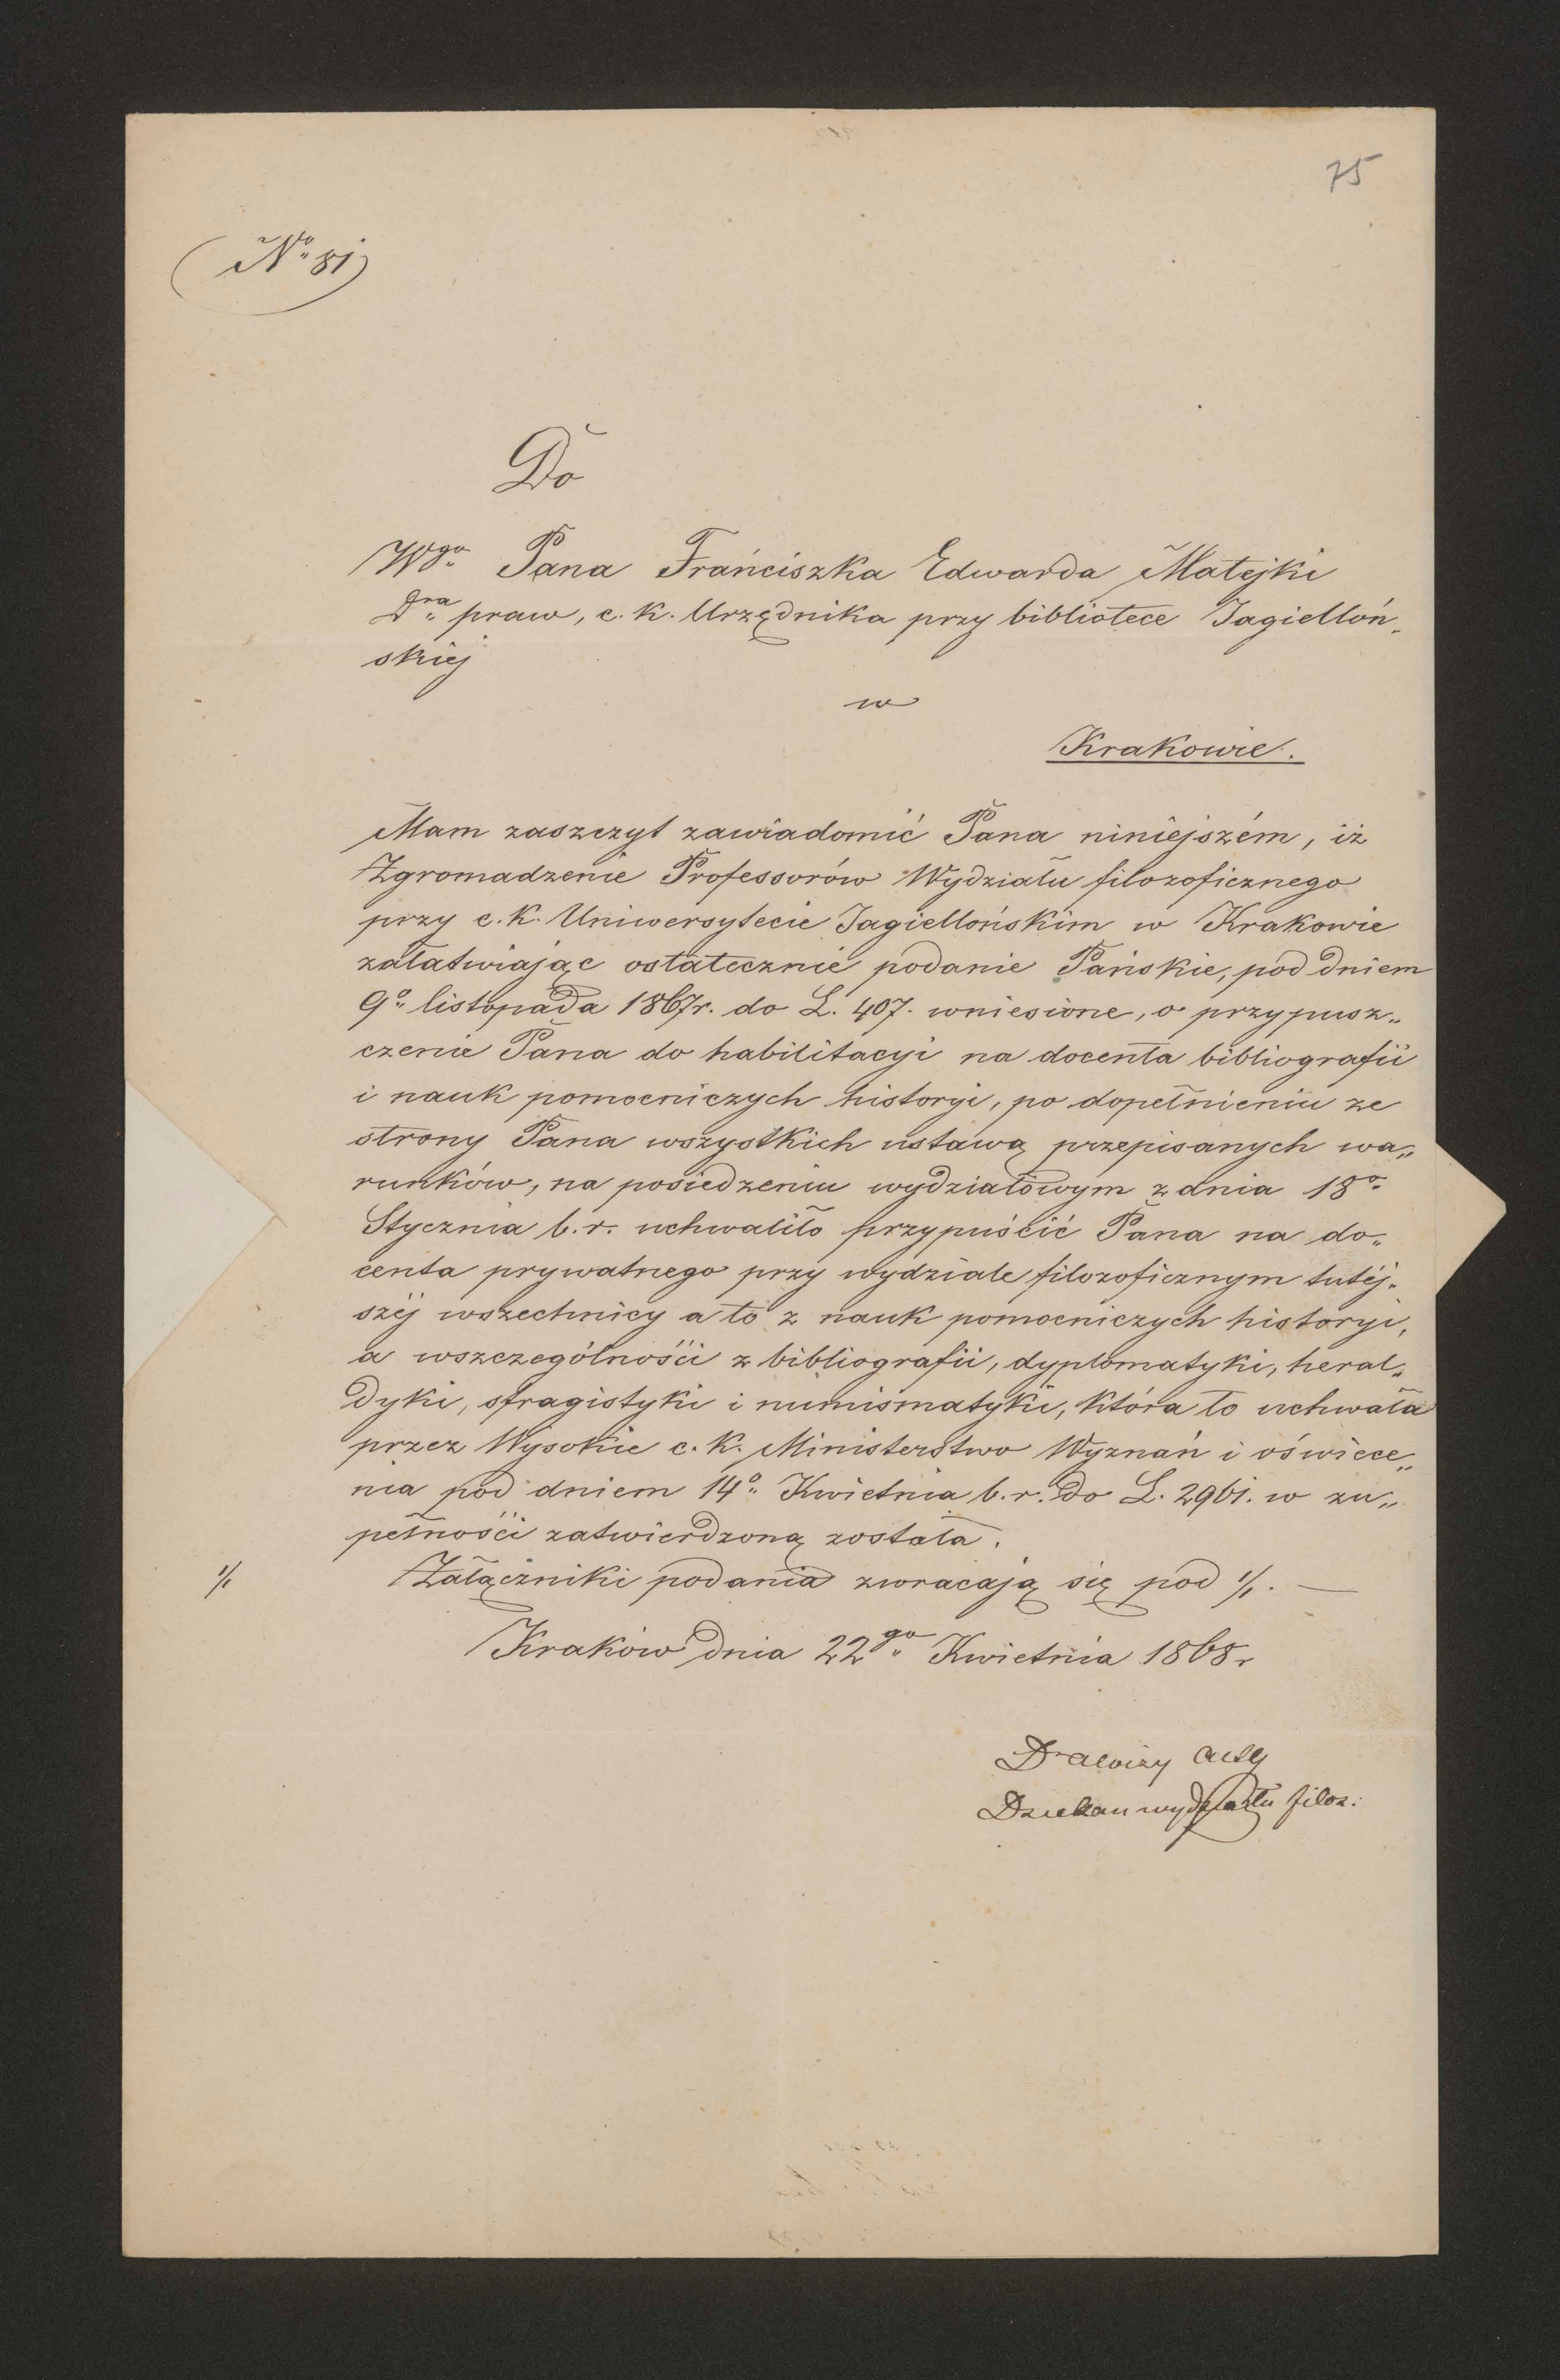 75
(No 81)
Do
Wgo Pana Franciszka Edwarda Matejki
Dra praw, c. k. Urzędnika przy bibliotece Jagielloń-
skiej
w
Krakowie.
Mam zaszczyt zawiadomić Pana niniejszém, iż
Zgromadzenie Professorów Wydziału filozoficznego
przy c. k. Uniwersytecie Jagiellońskim w Krakowie
załatwiając ostatecznie podanie Pańskie, pod dniem
9o listopada 1867r. do L. 407. wniesione, o przypusz-
czenie Pana do habilitacyi na docenta bibliografii
i nauk pomocniczych historyi, po dopełnieniu ze
strony Pana wszystkich ustawą przepisanych wa-
runków, na posiedzeniu wydziałowym z dnia 18o
Stycznia b. r. uchwaliło przypuścić Pana na do-
centa prywatnego przy wydziale filozoficznym tutéj-
széj wszechnicy a to z nauk pomocniczych historyi,
a wszczególności z bibliografii, dyplomatyki, heral-
dyki, sfragistyki i numismatyki, która to uchwała
przez Wysokie c. k. Ministerstwo Wyznań i oświece-
nia pod dniem 14o Kwietnia b. r. do L. 2961. w zu-
pełności zatwierdzoną została.
1/1 Załączniki podania zwracają się pod 1/1. —
Kraków dnia 22go Kwietnia 1868r
Dr Alojzy Alth
Dziekan wydziału filoz: